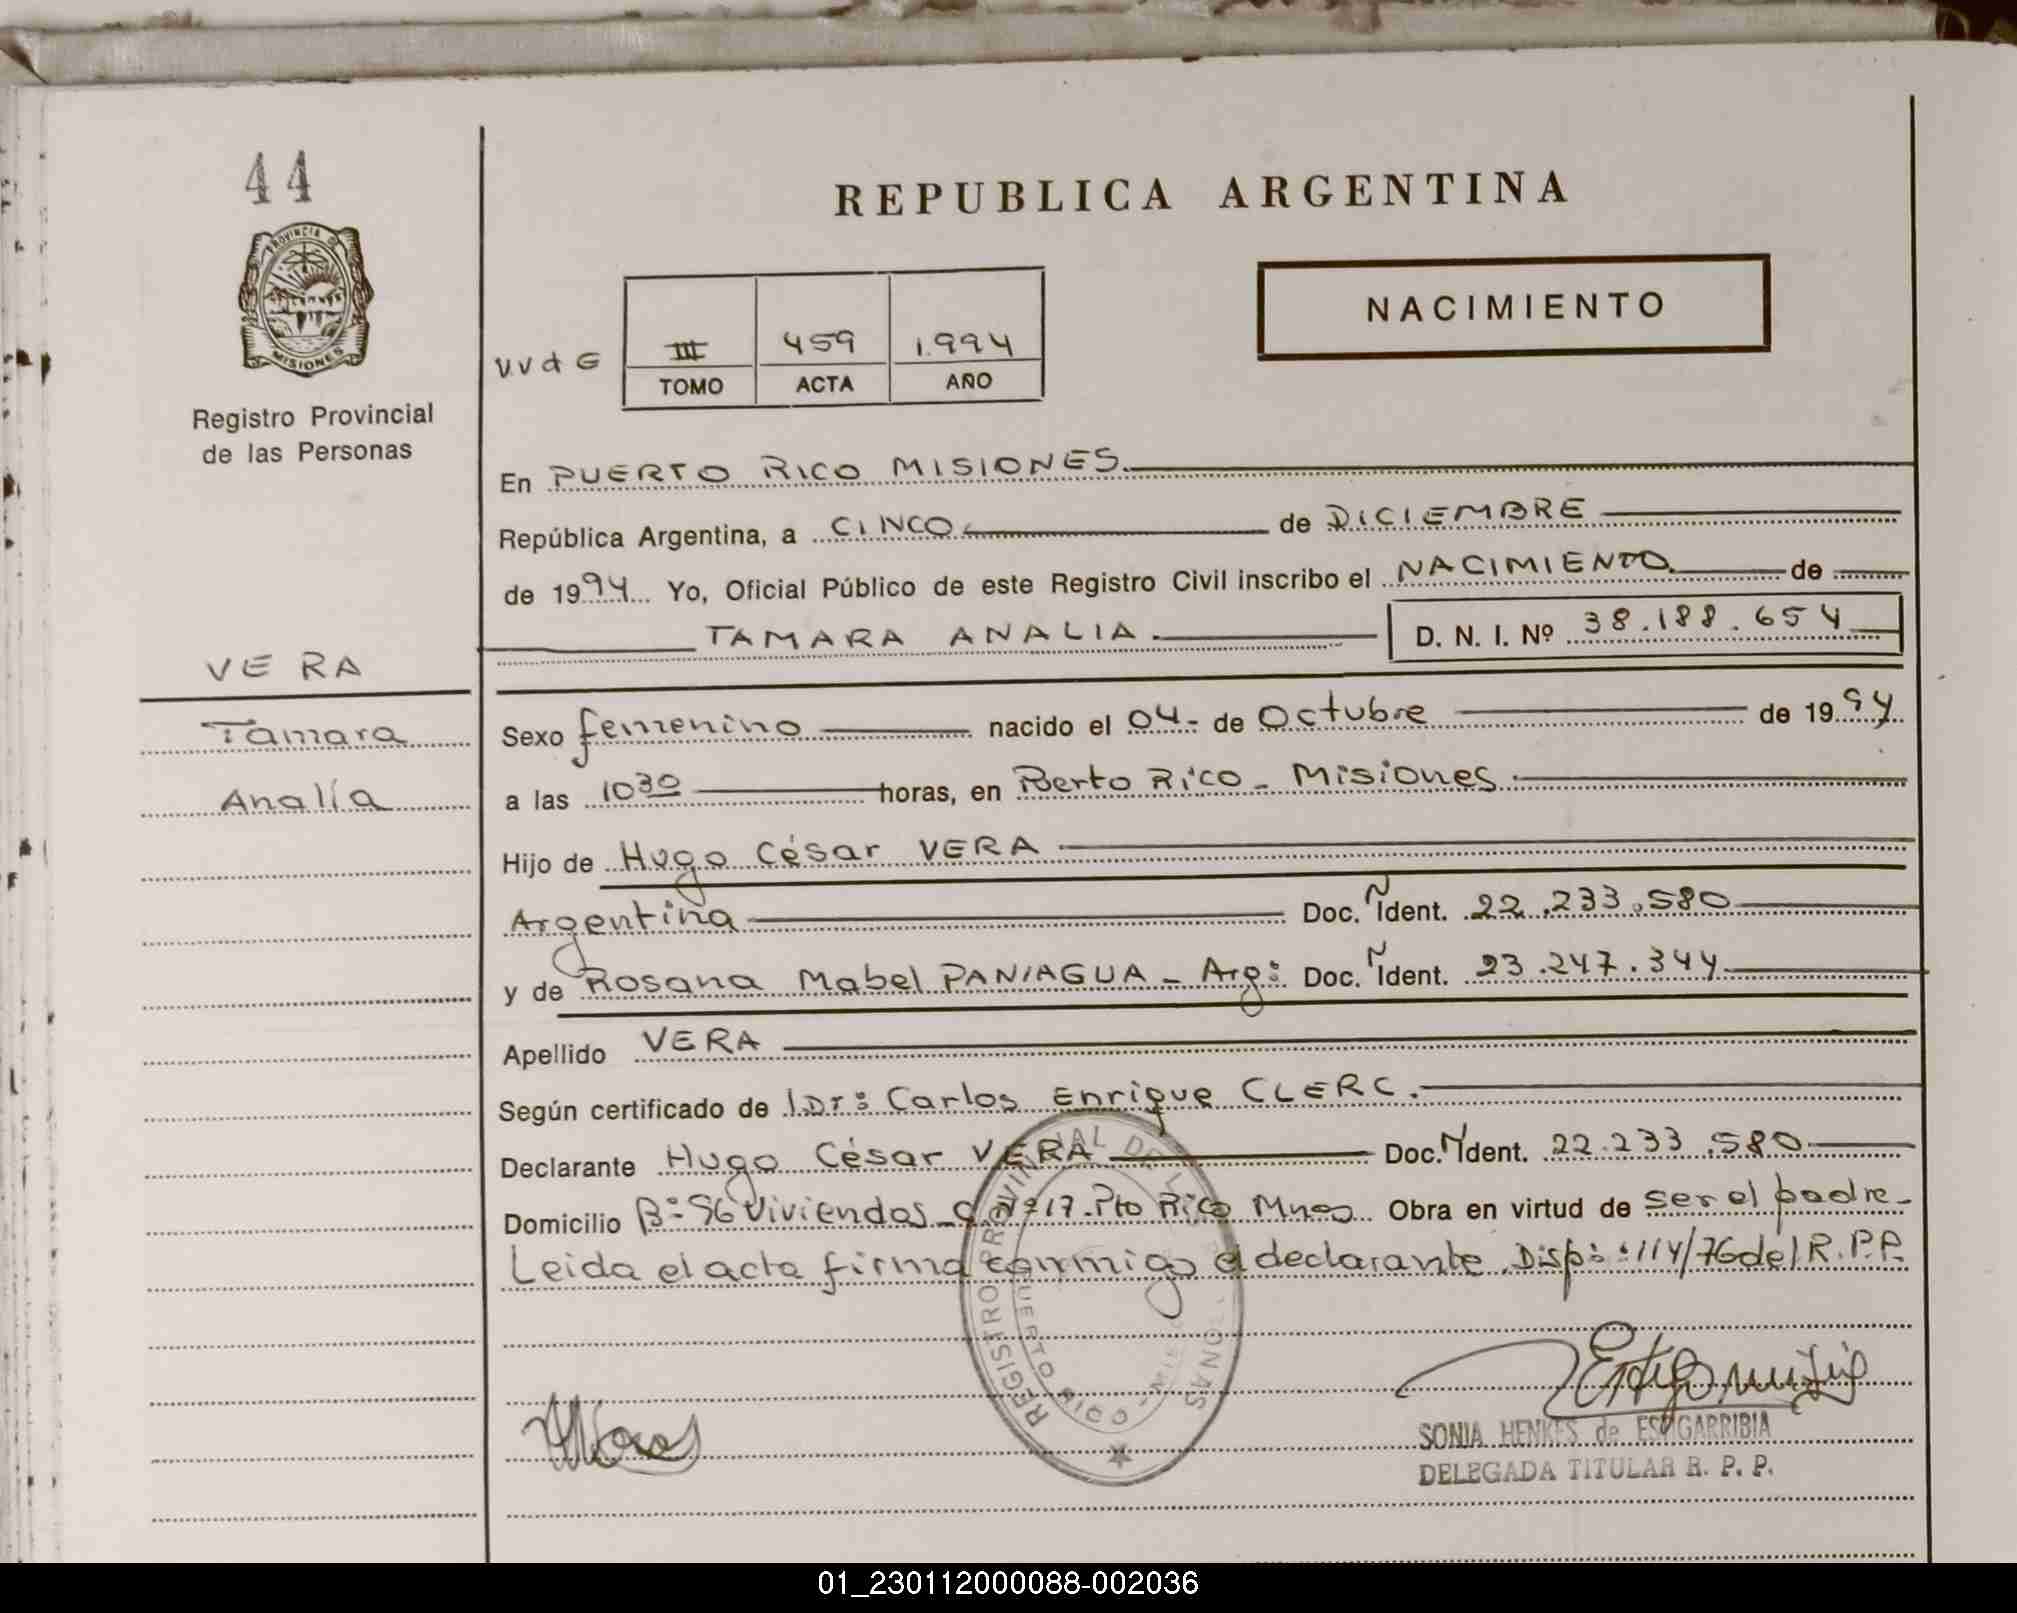 44
REPUBLICA ARGENTINA
PROVINCIA DE
MISIONES
NACIMIENTO
VVdG
III 459 1.994
TOMO ACTA AÑO
Registro Provincial
de las Personas
En PUERTO RICO MISIONES.
República Argentina, a CINCO de DICIEMBRE
de 1994 Yo, Oficial Público de este Registro Civil inscribo el NACIMIENTO de
TAMARA ANALIA. D. N. I. Nº 38.188.654
VERA
Tamara
Analía
Sexo femenino nacido el 04- de Octubre de 1994
a las 10 30 horas, en Puerto Rico - Misiones
Hijo de Hugo César VERA
Argentina Doc. Ñ Ident. 22.233.580
y de Rosana Mabel PANIAGUA - Arg: Doc. Ñ Ident. 23.247.344
Apellido VERA
Según certificado de l.Dr: Carlos Enrique CLERC.
Declarante Hugo César VERA Doc. Ñ Ident. 22.233.580
Domicilio Bº 56 Viviendas Nº 17. Pto Rico Mnes Obra en virtud de ser el padre-
Leida el acta firma conmigo el declarante. Disp: 114/76 del R.P.P.
REGISTRO PROVINCIAL DE LAS PERSONAS
PUERTO RICO - MISIONES
SONIA HENKES de ESTIGARRIBIA
DELEGADA TITULAR R. P. P.
01_230112000088-002036